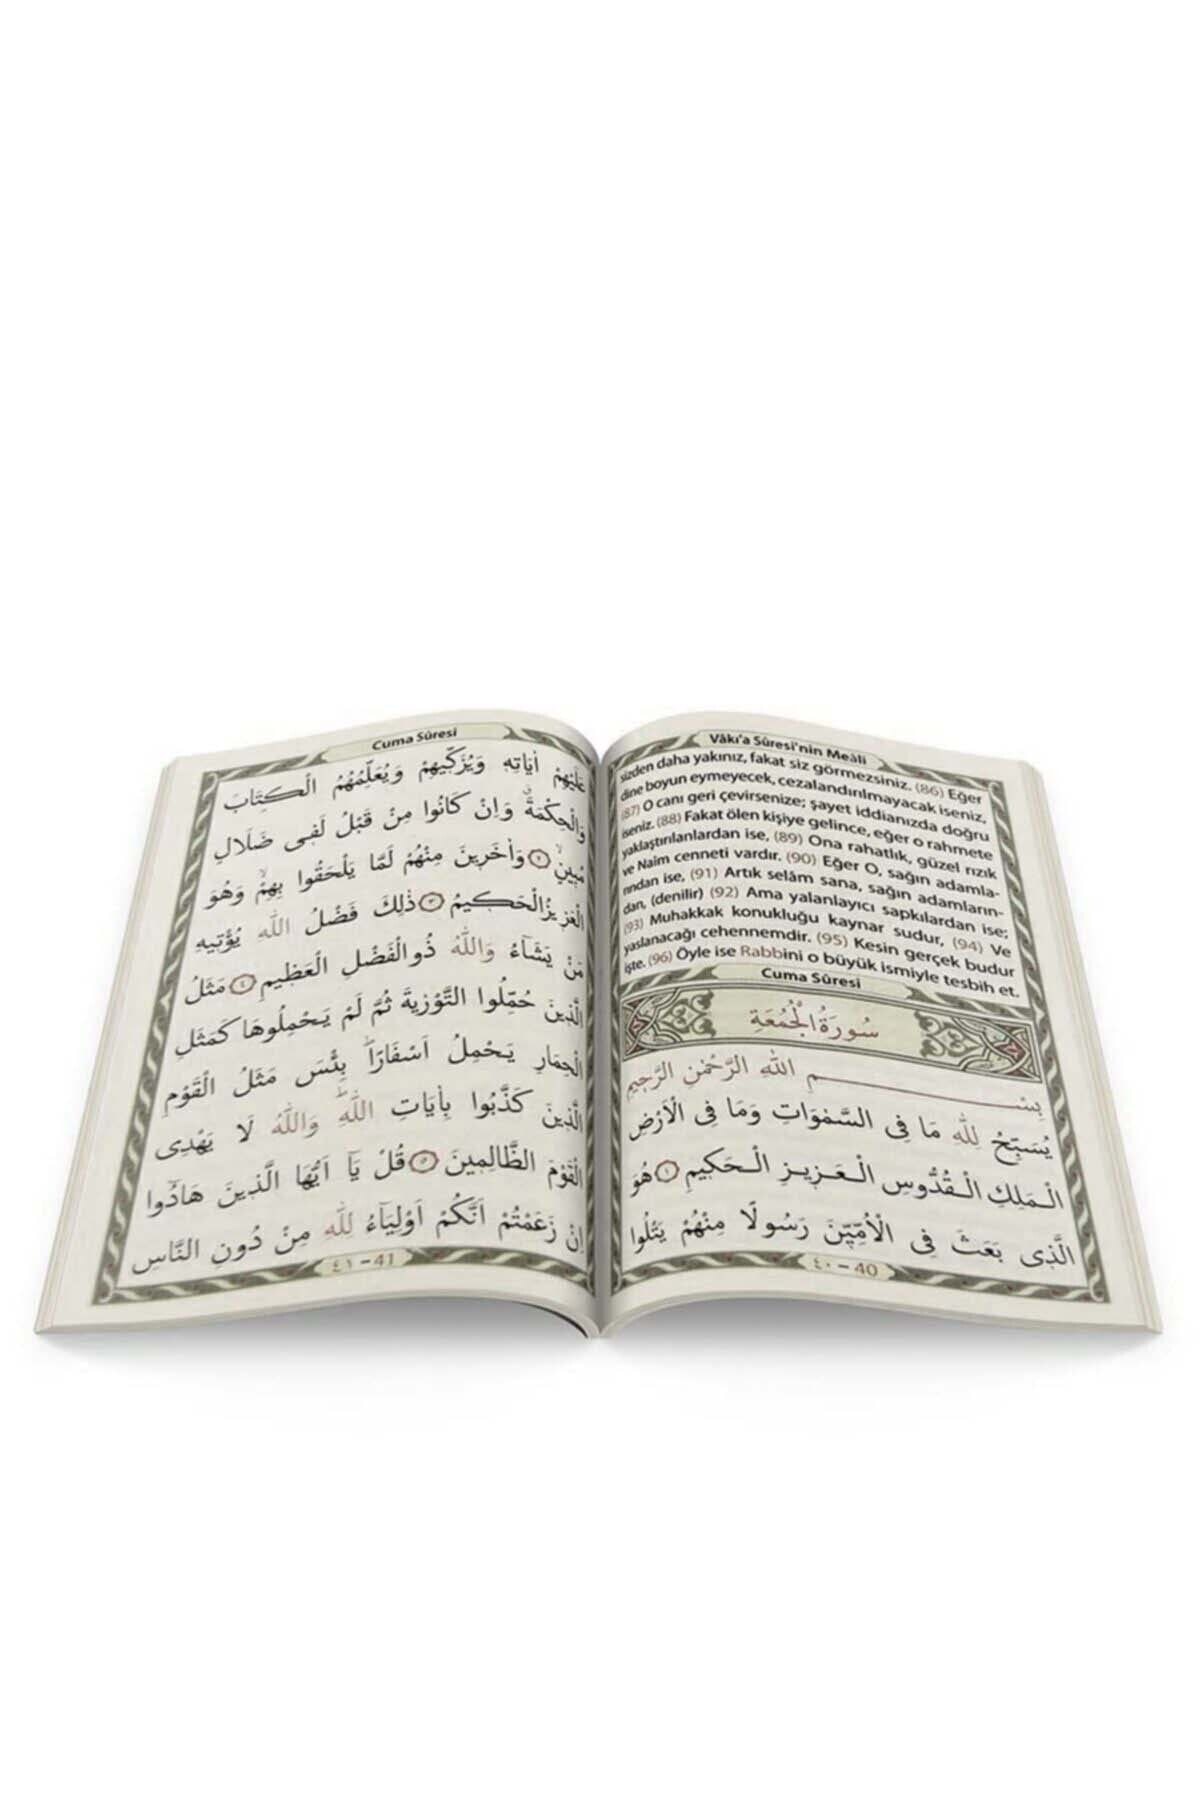 Vâkı'a Sûresi'nin Meâli
sizden daha yakınız, fakat siz görmezsiniz. (86) Eğer
dine boyun eymeyecek, cezalandırılmayacak iseniz,
(87) O canı geri çevirsenize; şayet iddianızda doğru
iseniz. (88) Fakat ölen kişiye gelince, eğer o rahmete
yaklaştırılanlardan ise, (89) Ona rahatlık, güzel rızık
ve Naîm cenneti vardır. (90) Eğer O, sağın adamla-
rından ise, (91) Artık selâm sana, sağın adamların-
dan, (denilir) (92) Ama yalanlayıcı sapkılardan ise;
(93) Muhakkak konukluğu kaynar sudur, (94) Ve
yaslanacağı cehennemdir. (95) Kesin gerçek budur
işte. (96) Öyle ise Rabbini o büyük ismiyle tesbih et.
Cuma Sûresi
سُورَةُ الْجُمُعَةِ
بِسْمِ اللّٰهِ الرَّحْمٰنِ الرَّحِيمِ
يُسَبِّحُ لِلّٰهِ مَا فِى السَّمٰوَاتِ وَمَا فِى الْاَرْضِ
الْمَلِكِ الْقُدُّوسِ الْعَزِيزِ الْحَكِيمِ ﴿١﴾ هُوَ
الَّذِى بَعَثَ فِى الْاُمِّيّنَ رَسُولًا مِنْهُمْ يَتْلُوا
٤٠ - 40
Cuma Sûresi
عَلَيْهِمْ اٰيَاتِهِ وَيُزَكِّيهِمْ وَيُعَلِّمُهُمُ الْكِتَابَ
وَالْحِكْمَةَۗ وَاِنْ كَانُوا مِنْ قَبْلُ لَفِى ضَلَالٍ
مُبِينٍۙ ﴿٢﴾ وَاٰخَرِينَ مِنْهُمْ لَمَّا يَلْحَقُوا بِهِمْۙ وَهُوَ
الْعَزِيزُ الْحَكِيمُ ﴿٣﴾ ذٰلِكَ فَضْلُ اللّٰهِ يُؤْتِيهِ
مَنْ يَشَاءُ وَاللّٰهُ ذُو الْفَضْلِ الْعَظِيمِ ﴿٤﴾ مَثَلُ
الَّذِينَ حُمِّلُوا التَّوْرٰيةَ ثُمَّ لَمْ يَحْمِلُوهَا كَمَثَلِ
الْحِمَارِ يَحْمِلُ اَسْفَارًاۜ بِئْسَ مَثَلُ الْقَوْمِ
الَّذِينَ كَذَّبُوا بِاٰيَاتِ اللّٰهِۜ وَاللّٰهُ لَا يَهْدِى
الْقَوْمَ الظَّالِمِينَ ﴿٥﴾ قُلْ يَا اَيُّهَا الَّذِينَ هَادُوا
اِنْ زَعَمْتُمْ اَنَّكُمْ اَوْلِيَاءُ لِلّٰهِ مِنْ دُونِ النَّاسِ
٤١ - 41